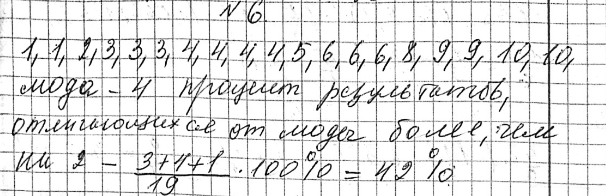 №6
1, 1, 2, 3, 3, 3, 4, 4, 4, 4, 5, 6, 6, 6, 8, 9, 9, 10, 10,
мода – 4 процент результатов,
отличающихся от моды более, чем
на 2 – \frac{3+4+1}{19} · 100% = 42%